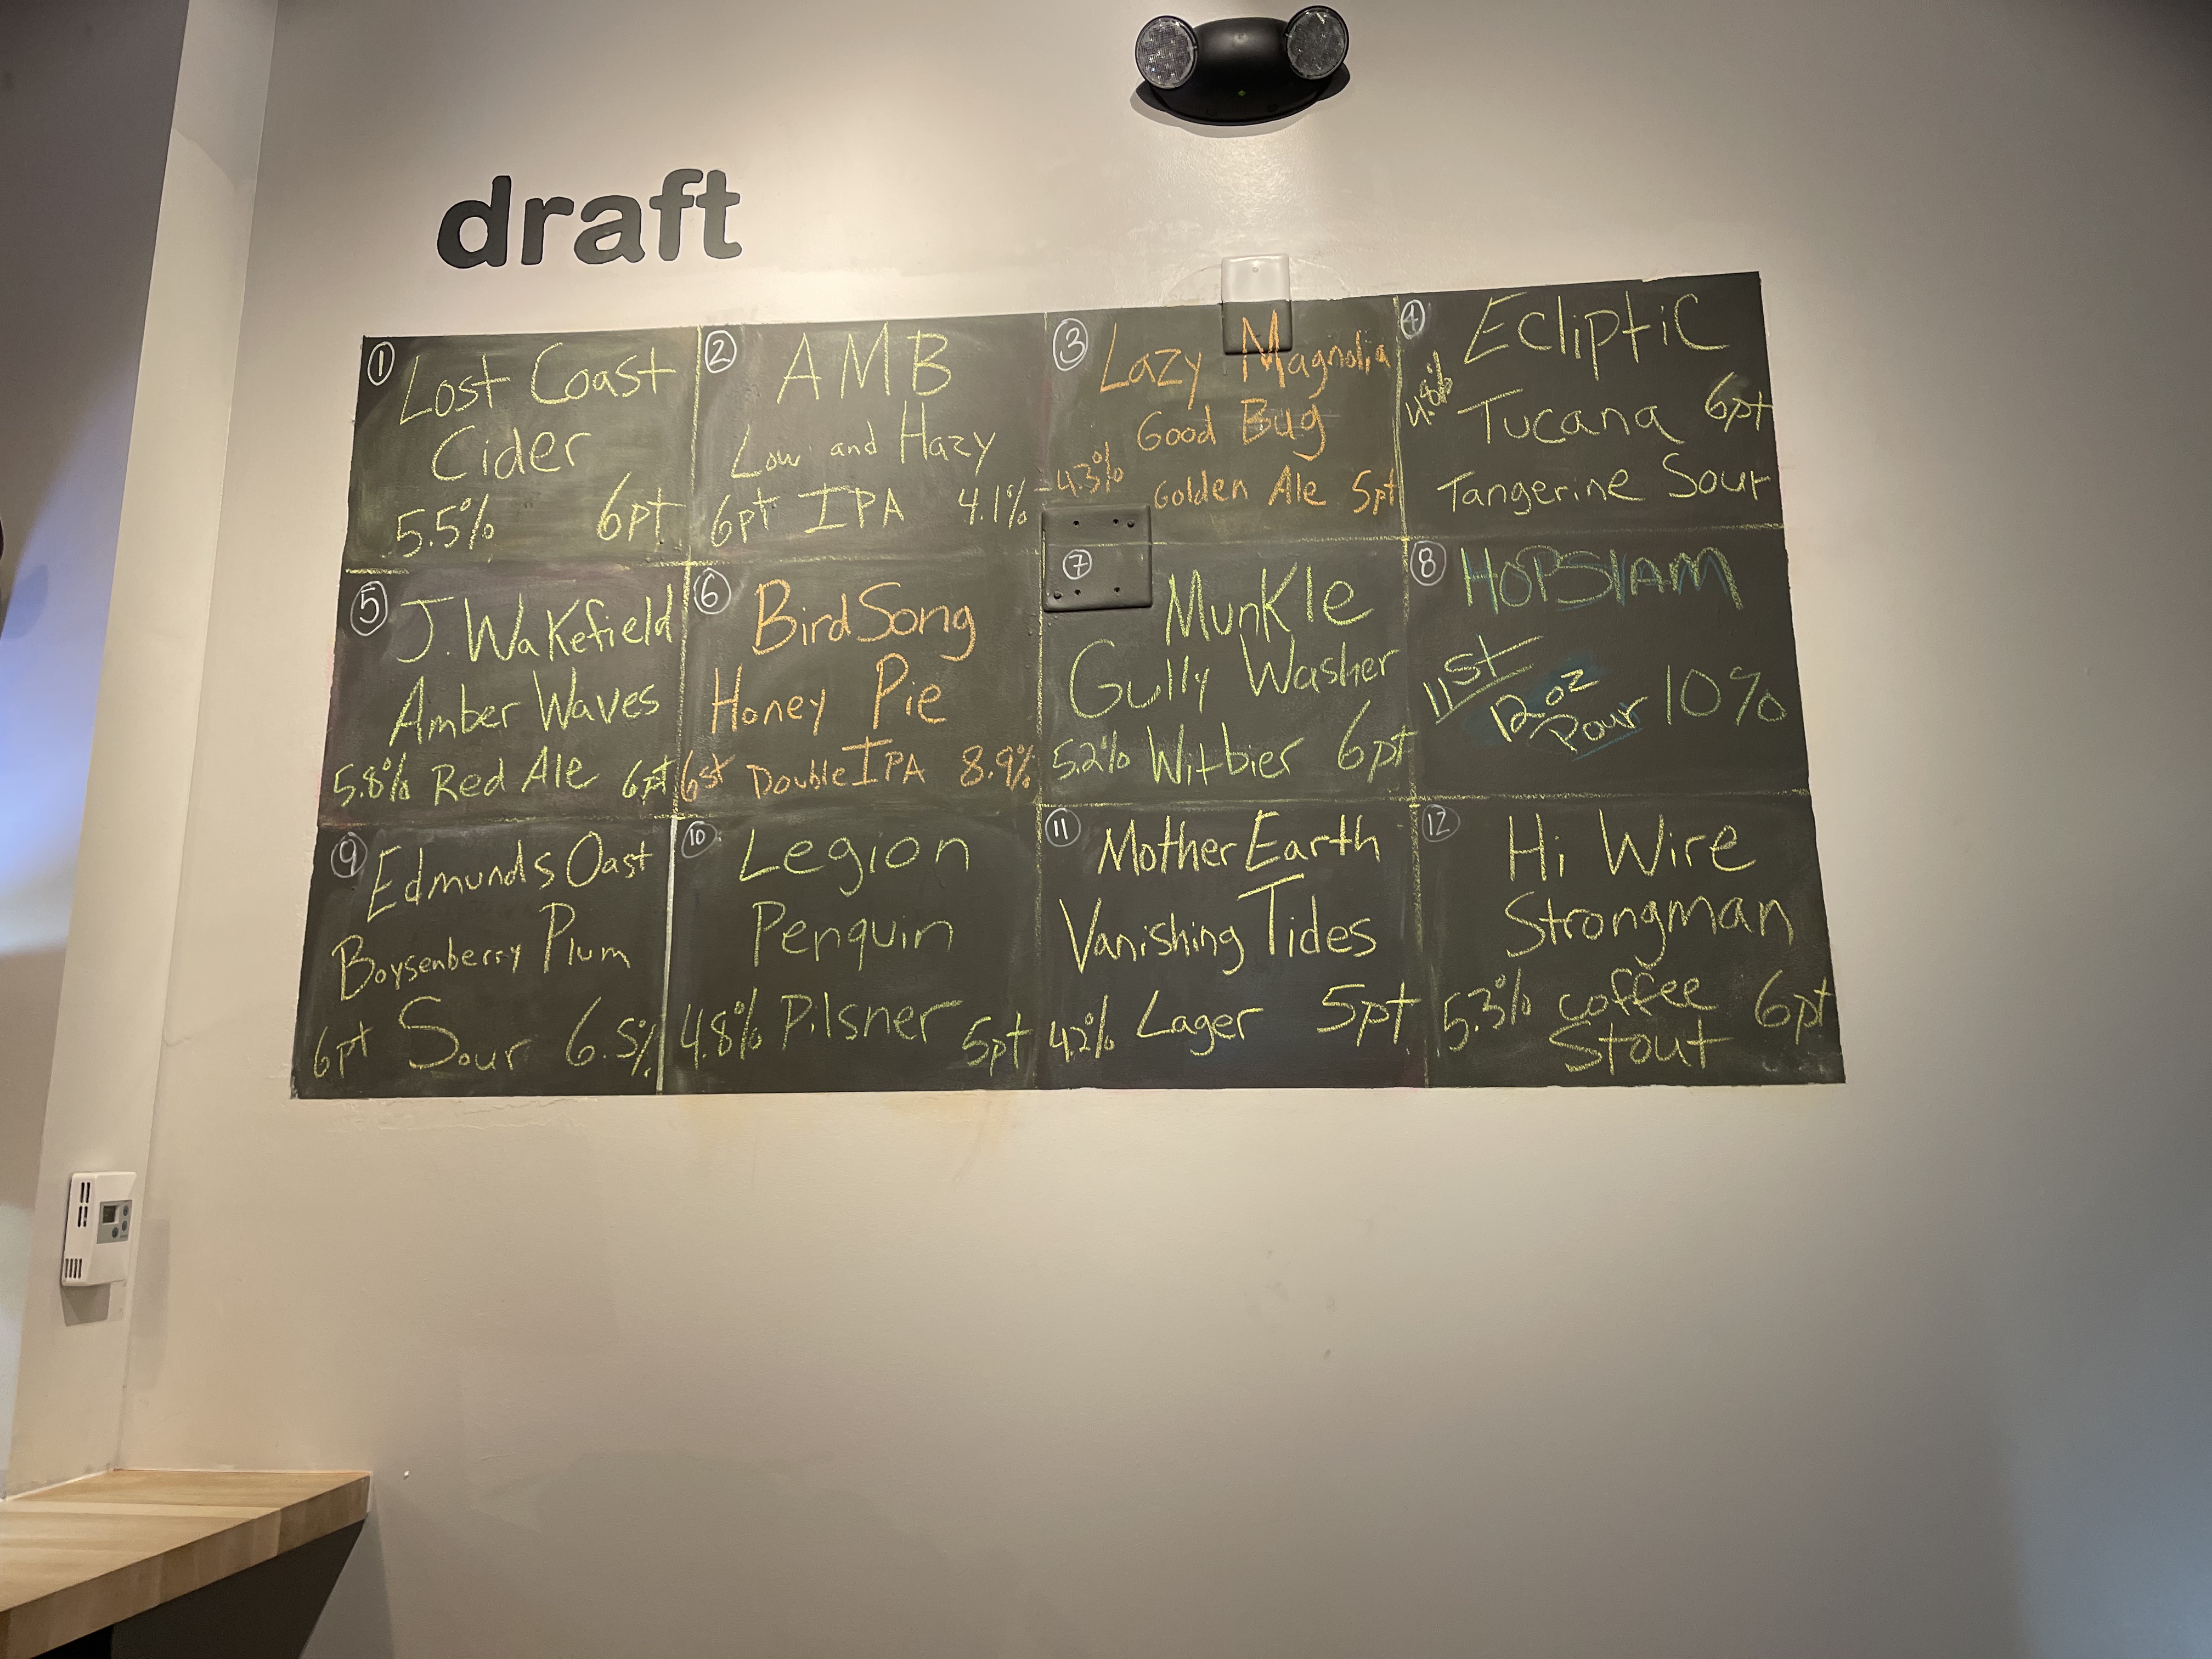 draft
1 Lost Coast
Cider
5.5% 6pt
2 AMB
Low and Hazy
6pt IPA 4.1%
3 Lazy Magnolia
Good Bug
4.3% Golden Ale 5pt
4 Ecliptic
4.8% Tucana 6pt
Tangerine Sour
5 J. Wakefield
Amber Waves
5.8% Red Ale 6pt
6 BirdSong
Honey Pie
6st Double IPA 8.9%
7 Munkle
Gully Washer
5.2% Witbier 6pt
8 HOPSlAM
11st 12oz Pour 10%
9 Edmunds Oast
Boysenberry Plum
6pt Sour 6.5%
10 Legion
Penquin
4.8% Pilsner 5pt
11 Mother Earth
Vanishing Tides
4.2% Lager 5pt
12 Hi Wire
Strongman
5.3% coffee 6pt
Stout